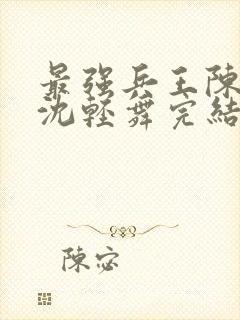 最强兵王陳
沈輕舞完結
陳宓